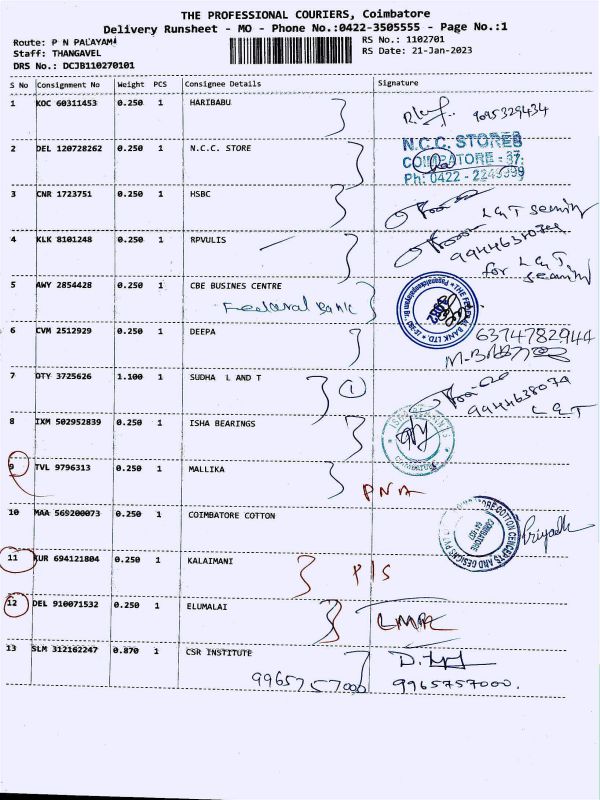 THE PROFESSIONAL COURIERS, Coimbatore
Delivery Runsheet - MO - Phone No.:0422-3505555 - Page No.:1
Route: P N PALAYAM
Staff: THANGAVEL
DRS No.: DCJB110270101
RS No.: 1102701
RS Date: 21-Jan-2023
S No Consignment No Weight PCS Consignee Details Signature
1 KOC 60311453 0.250 1 HARIBABU
9095329434
2 DEL 120728262 0.250 1 N.C.C. STORE
N.C.C. STORES
COIMBATORE - 37.
Ph: 0422 - 2245999
3 CNR 1723751 0.250 1 HSBC
L&T security
4 KLK 8101248 0.250 1 RPVULIS
9944638074
for L&T, security
5 AWY 2854428 0.250 1 CBE BUSINES CENTRE
Federal Bank
THE FEDERAL BANK LTD.
6 CVM 2512929 0.250 1 DEEPA
6374782944
7 OTY 3725626 1.100 1 SUDHA L AND T
1
9944638074
L&T
8 IXM 502952839 0.250 1 ISHA BEARINGS
9 TVL 9796313 0.250 1 MALLIKA
PNA
10 MAA 569200073 0.250 1 COIMBATORE COTTON
COTTON CONCEPTS AND DESIGNS
COIMBATORE
Priyadh
11 KUR 694121804 0.250 1 KALAIMANI
P/S
12 DEL 910071532 0.250 1 ELUMALAI
13 SLM 312162247 0.870 1 CSR INSTITUTE
9965757000
9965757000.